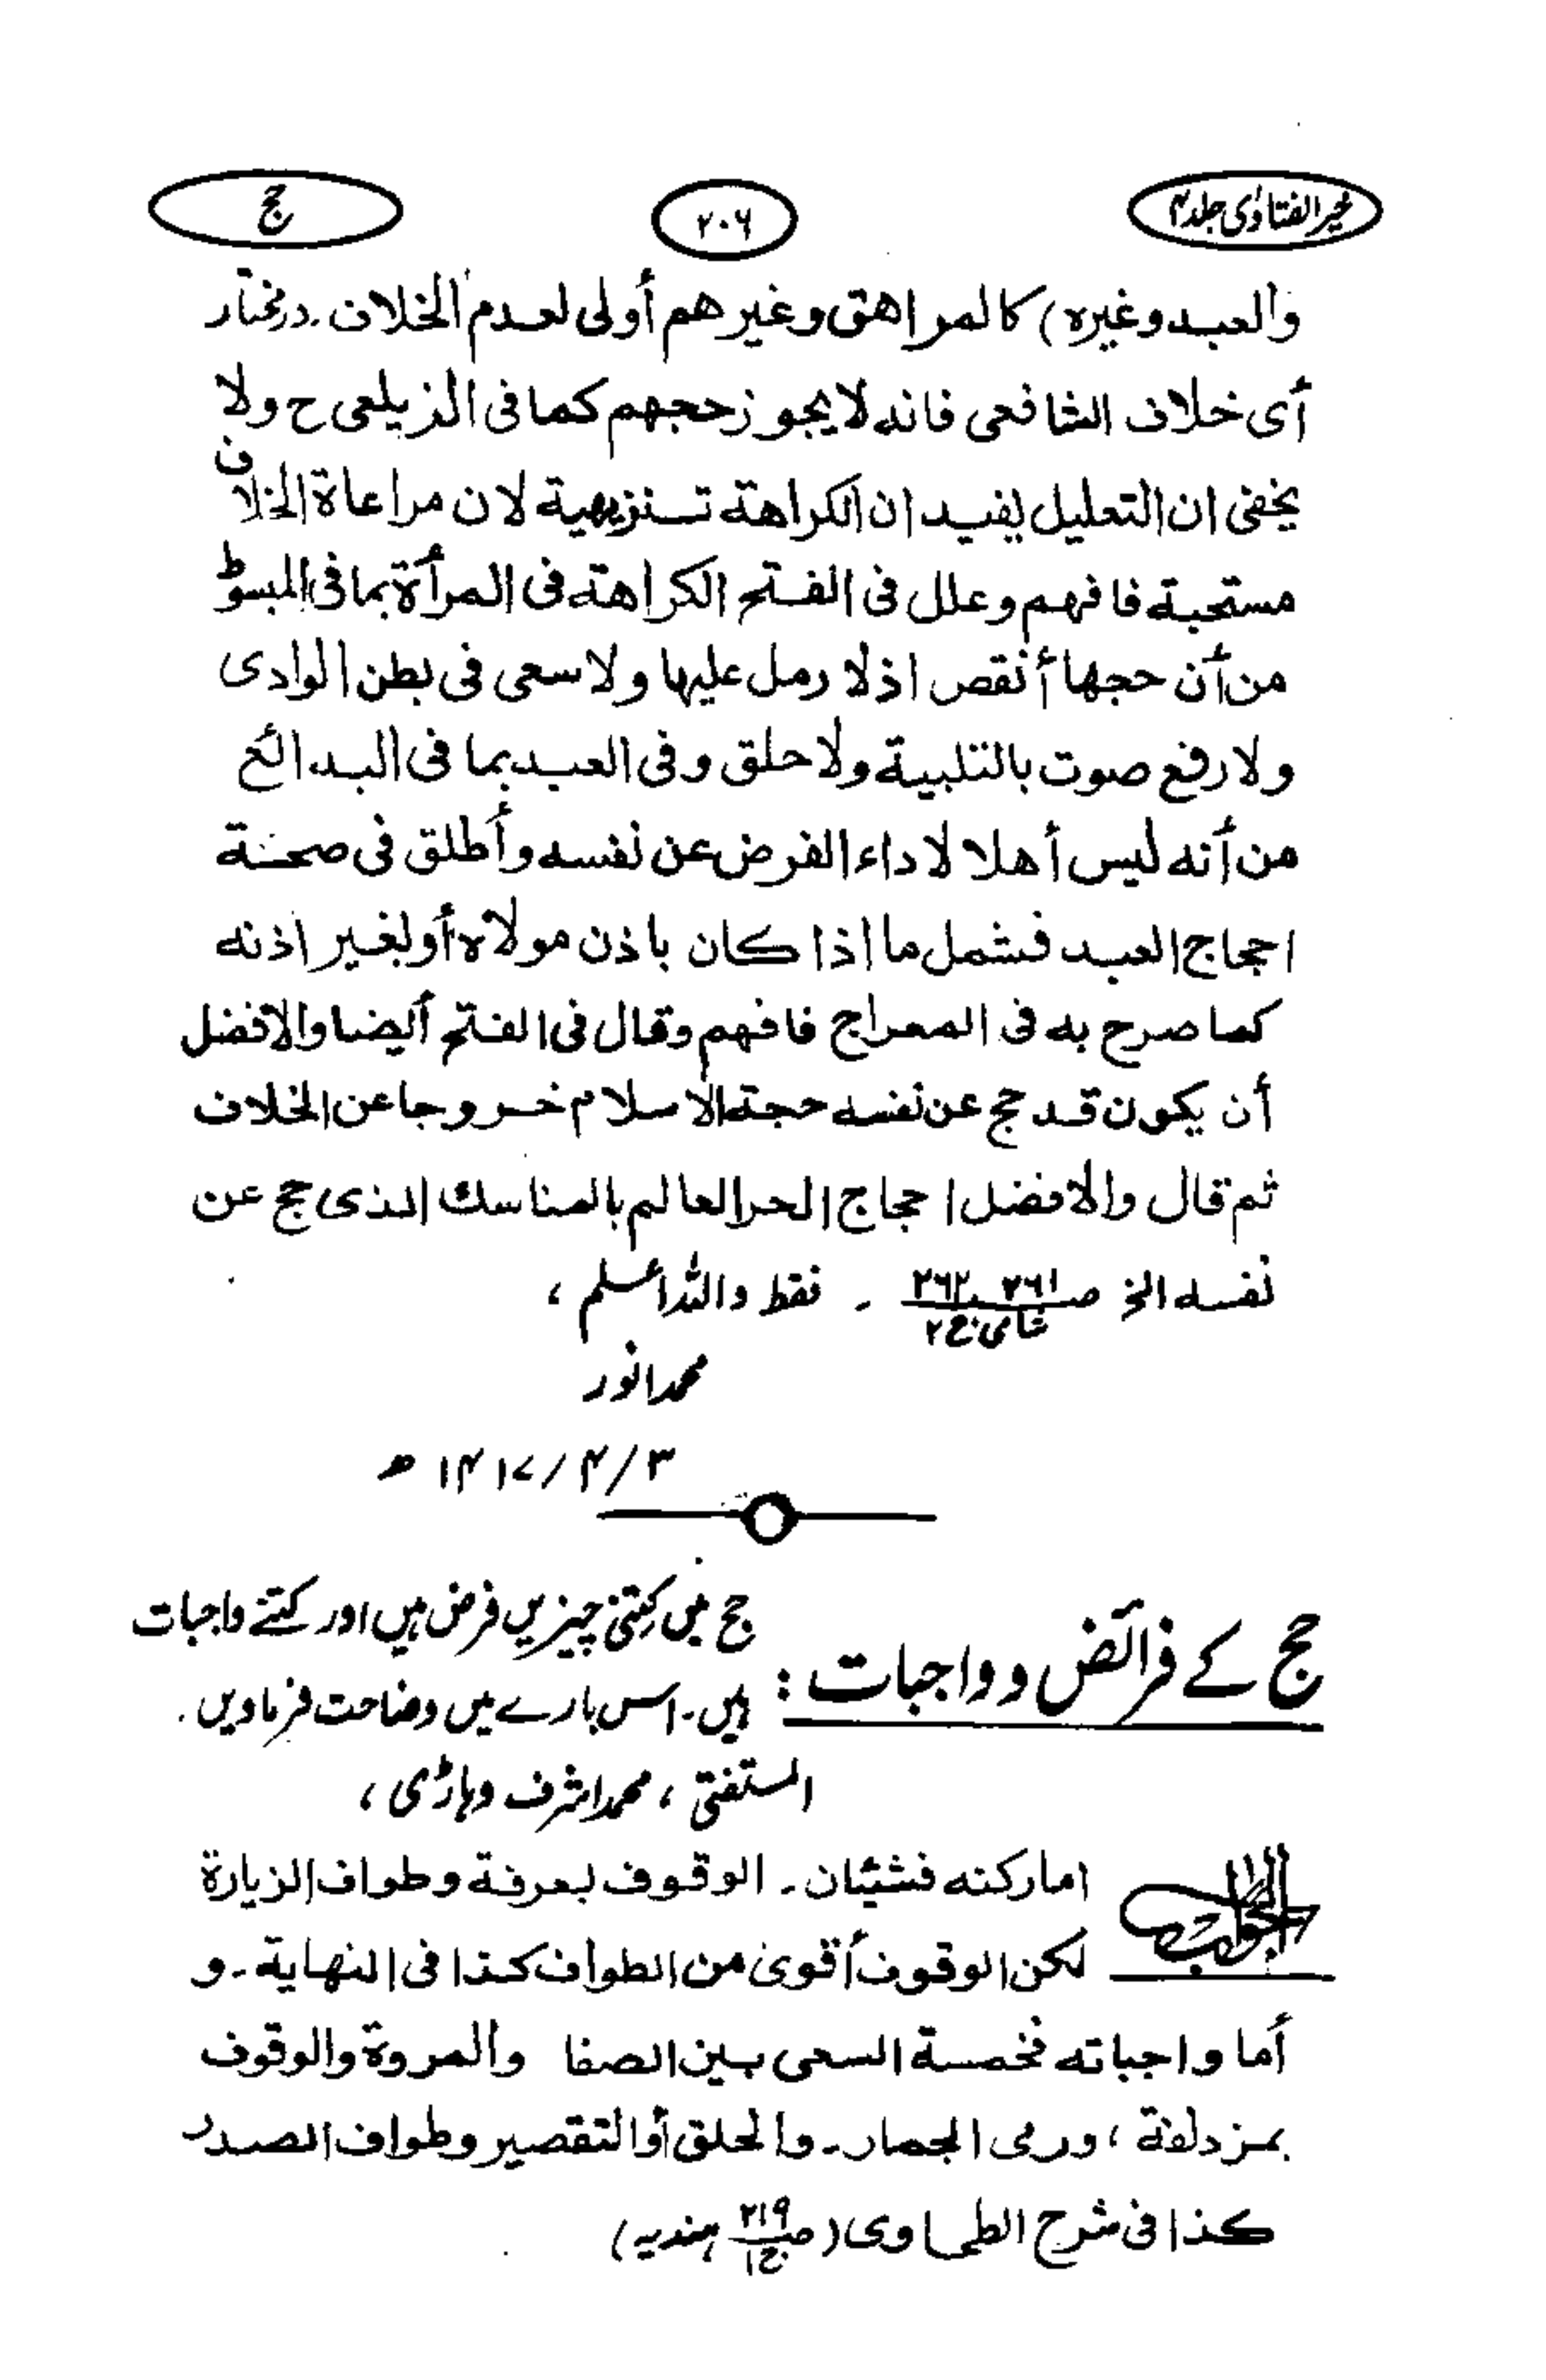 خیر الفتاوی جلد ۴
۲۰۶
حج
والعبد وغيره) كالمراهق وغيرهم أولى لعدم الخلاف۔ درمختار
أى خلاف الشافعى فانه لا يجوز حجهم كما فى الزيلعى ح ولا
يخفى ان التعليل يفيد ان الكراهة تنزيهية لان مراعاة الخلاف
مستحبة فافهم وعلل فى الفتح الكراهة فى المرأة بما فى المبسوط
من أن حجها أنقص اذ لا رمل عليها ولا سعى فى بطن الوادى
ولا رفع صوت بالتلبية ولا حلق وفى العبد بما فى البدائع
من أنه ليس أهلا لاداء الفرض عن نفسه وأطلق فى صحة
احجاج العبد فشمل ما اذا كان باذن مولاه أو بغير اذنه
كما صرح به فى المعراج فافهم وقال فى الفتح أيضا والافضل
أن يكون قد حج عن نفسه حجة الاسلام خروجا عن الخلاف
ثم قال والافضل احجاج الحر العالم بالمناسك الذى حج عن
نفسه الخ صـ ۲۶۱، ۲۶۲ شامی ج ۲ ۔ فقط واللہ اعلم ،
محمد انور
۳ / ۴ / ۱۴۱۷ ھ
حج کے فرائض و واجبات :
حج میں کتنی چیزیں فرض ہیں اور کتنے واجبات
ہیں۔ اس بارے میں وضاحت فرمادیں۔
المستفتی ، محمد اشرف وہاڑی ،
الجواب
اما ركنه فشيئان۔ الوقوف بعرفة وطواف الزيارة
لكن الوقوف أقوى من الطواف كذا فى النهاية۔ و
أما واجباته فخمسة السعى بين الصفا والمروة والوقوف
بمزدلفة ، ورمى الجمار۔ والحلق أو التقصير وطواف الصدر
كذا فى شرح الطحاوى (صـ ۲۱۹ ج ۱ ہندیہ)